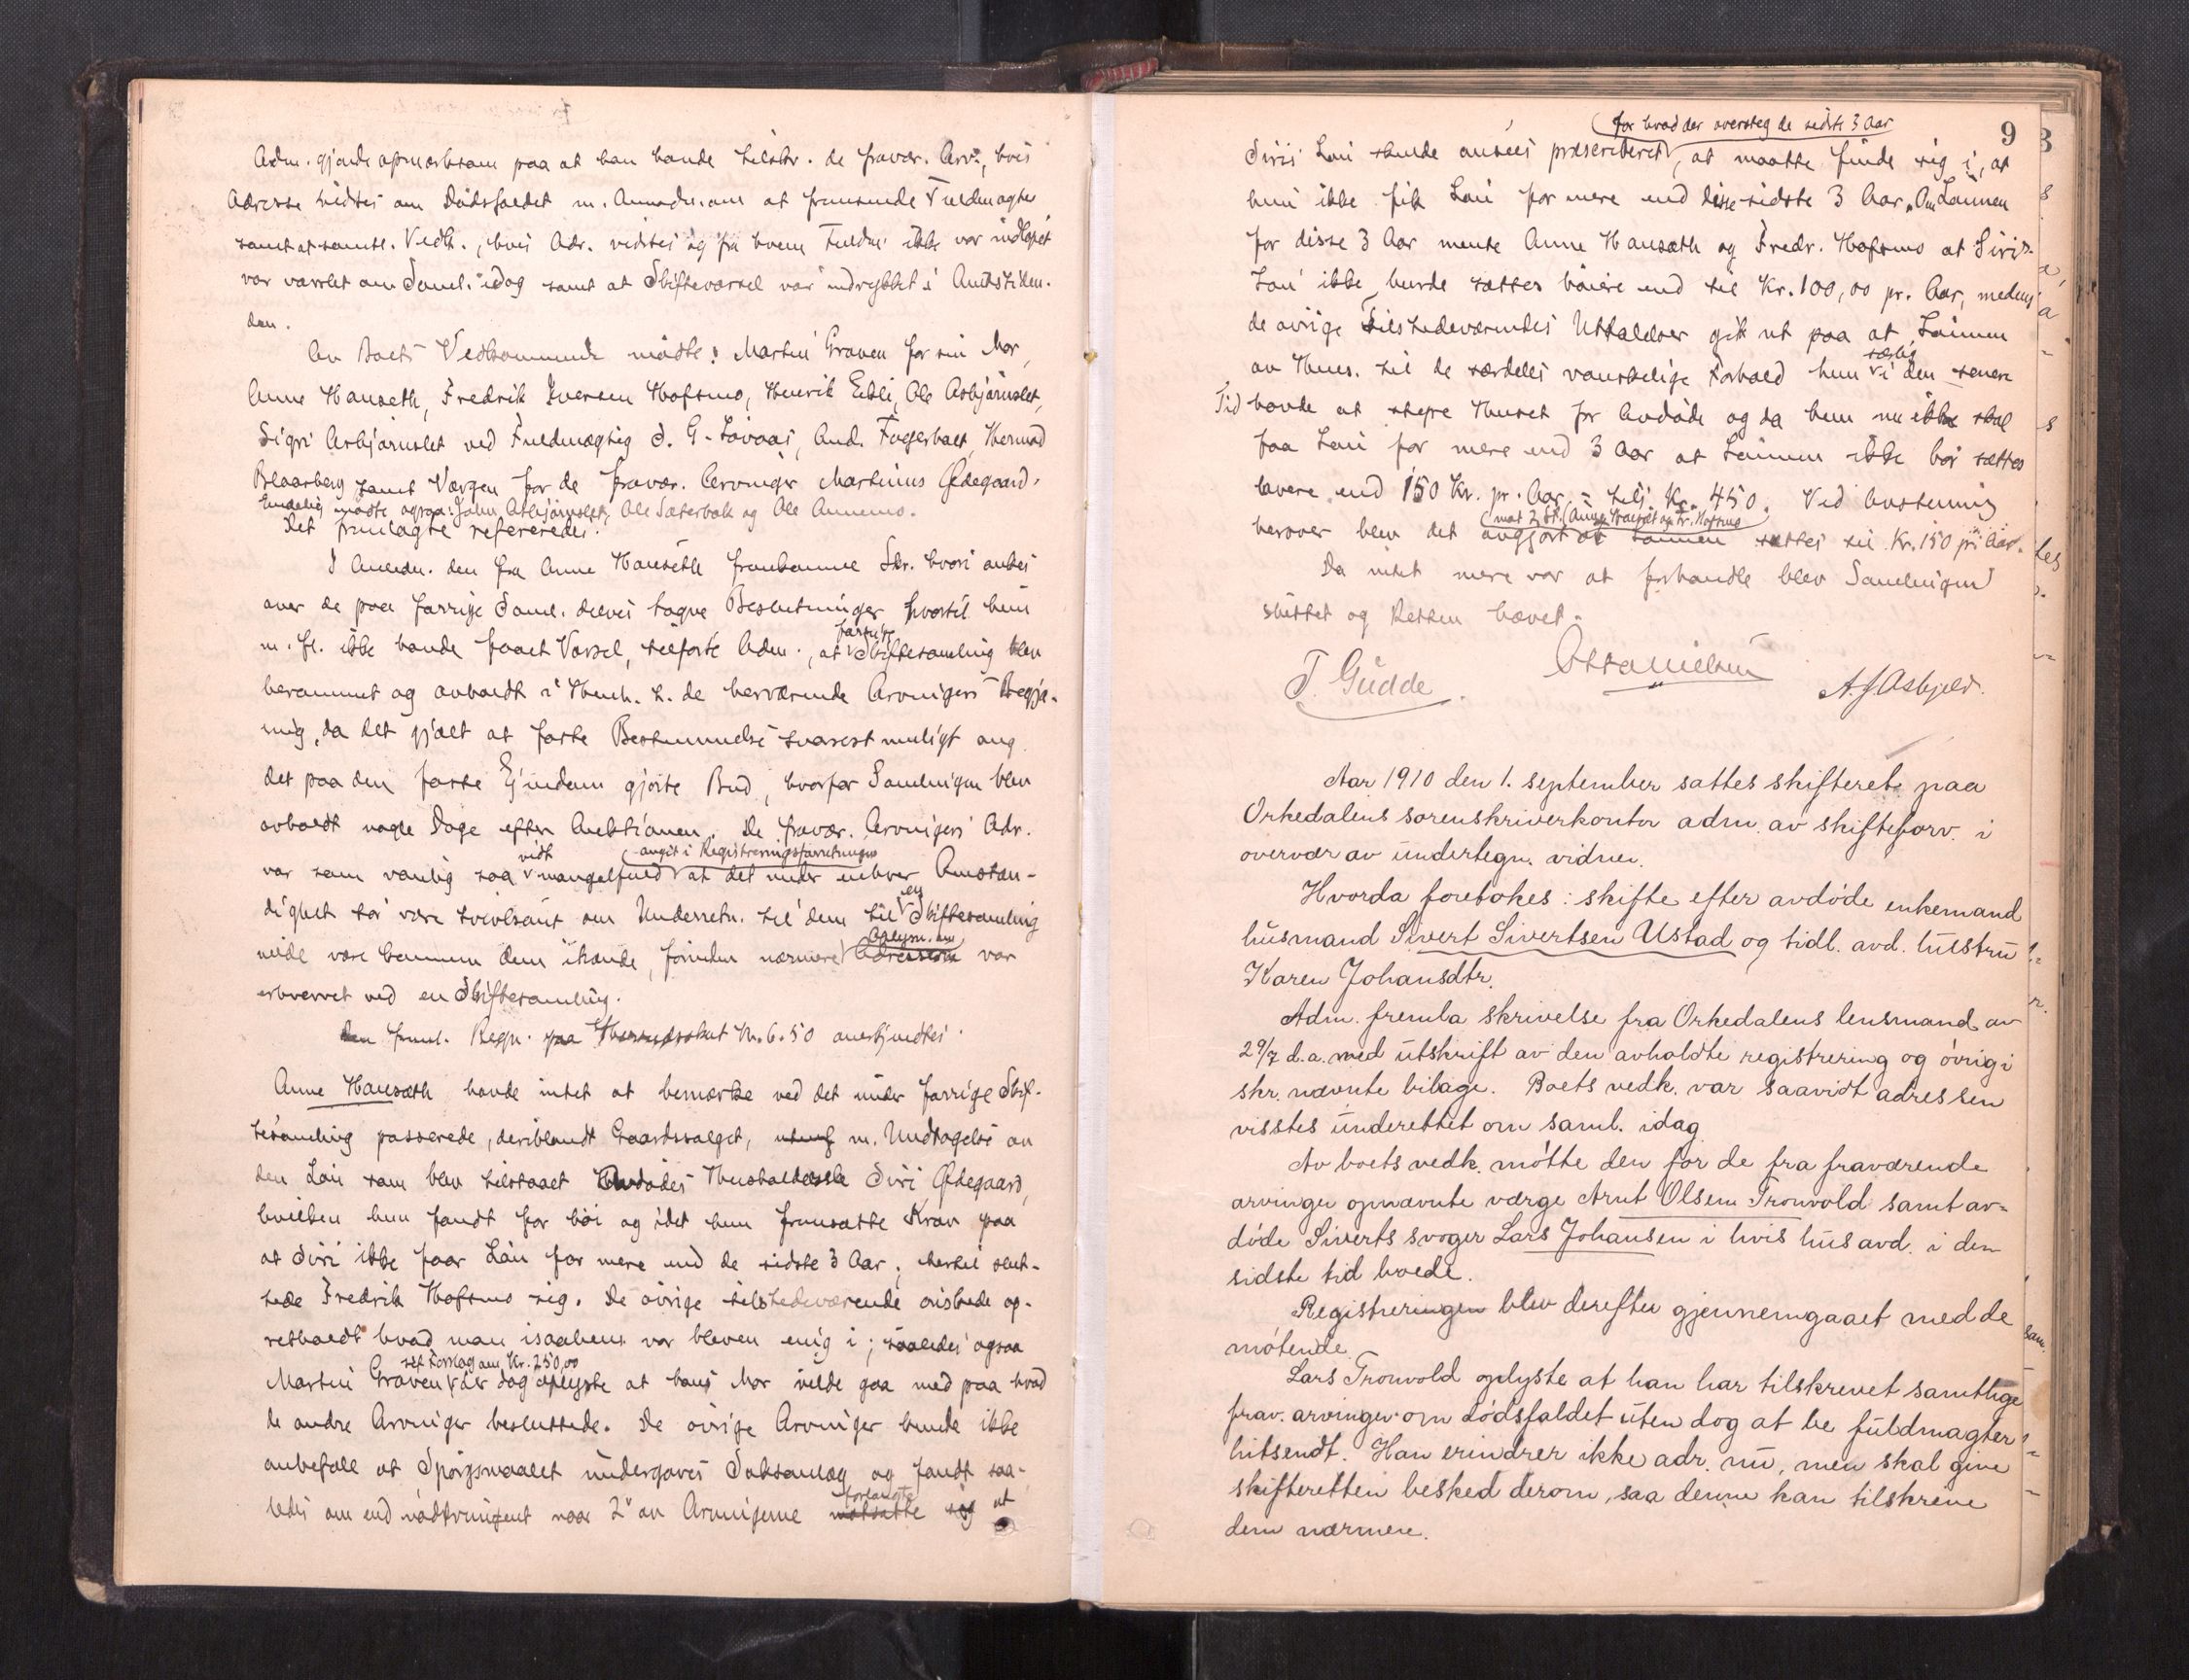 Adm. gjorde opmerksom paa at han havde tilskr. de fravær. Arv., hvis
Adresse vidstes om Dødsfaldet m. Anmodn. om at fremsende Fuldmagter
samt at samtl. Vedk., hvis Adr. vidstes og fra hvem Fuldm. ikke var indløpet
var varslet om Saml. idag samt at Skiftevarsel var indrykket i Amtstiden-
den.
Av Boets Vedkommende mødte: Martin Graven for sin Mor,
Anne Hansæth, Fredrik Iversen Hofsmo, Henrik Eithi, Ole Asbjørnslet,
Sigri Asbjørnslet ved Fuldmægtig J. G. Løvaas, And. Fagerholt, Hermod
Blaasberg samt Værgen for de fravær. Arvinger Martinus Ødegaard.
Endelig mødte ogsaa: John Asbjørnslet, Ole Sæterbak og Ole Annemo.
Det fremlagte refereredes.
I Anledn. den fra Anne Hansæth fremkomne Skr. hvori ankes
over de paa forrige Saml. delvis tagne Beslutninger hvortil hun
m. fl. ikke havde faaet Varsel, tilførte Adm., at første Skiftesamling blev
berammet og avholdt i Henh. t. de herværende Arvingers Begjæ-
ring, da det gjaldt at fatte Bestemmelse snarest muligt ang.
det paa den faste Eiendom gjorte Bud, hvorfor Samlingen blev
avholdt nogle Dage efter Auktionen. De fravær. Arvingers Adr.
var som vanlig saa vidt mangelfuld angit i Registreringsforretningen at det under enhver Omstæn-
dighet tør være tvivlsomt om Underretn. til dem til en Skiftesamling
vilde være kommen dem ihænde, førinden nærmere Oplysn. om Adressen var
erhvervet ved en Skiftesamling.
Den freml. Regn. paa Kr. 6.50 anerkjendtes.
Anne Hansæth havde intet at bemærke ved det under forrige Skif-
tesamling passerede, deriblandt Gaardssalget, m. Undtagelse av
den Løn som blev tilstaaet Avdødes Husholderske Siri Ødegaard,
hvilken hun fandt for høi og idet hun fremsatte Krav paa
at Siri ikke faar Løn for mere end de sidste 3 Aar; hertil slut-
tede Fredrik Hofsmo sig. De øvrige tilstedeværende ønskede op-
retholdt hvad man isaahens. var bleven enig i; saaledes ogsaa
Martin Graven set Forslag om Kr. 250,00 der dog oplyste at hans Mor vilde gaa med paa hvad
de andre Arvinger besluttede. De øvrige Arvinger kunde ikke
anbefale at Spørgsmaalet undergaves Saksanlæg og fandt saa-
ledes om end nødtvungent naar 2 av Arvingerne forlangte motsatte sig at
9
Siris Løn skulde ansees præscriberet for hvad der oversteg de sidste 3 Aar, at maatte finde sig i, at
hun ikke fik Løn for mere end disse sidste 3 Aar. Om Lønnen
for disse 3 Aar mente Anne Hansæth og Fredr. Hofsmo at Siris
Løn ikke burde sættes høiere end til Kr. 100,00 pr. Aar, medens
de øvrige Tilstedeværendes Uttalelser gik ut paa at Lønnen
av Hens. til de særdeles vanskelige Forhold hun særlig i den senere
Tid havde at styre Huset for Avdøde og da hun nu ikke skal
faa Løn for mere end 3 Aar at Lønnen ikke bør sættes
lavere end 150 Kr. pr. Aar = tils. Kr. 450. Ved Avstemning
herover blev det mot 2 St. (Anne Hansæt og Fr. Hofsmo) avgjort at Lønnen sættes til Kr. 150 pr. Aar.
Da intet mere var at forhandle blev Samlingen
sluttet og Retten hævet.
Otto Nielsen
T. Gudde. A. J. Asbjeld.
Aar 1910 den 1. september sattes skifteret paa
Orkedalens sorenskriverkontor adm. av skifteforv. i
overvær av undertegn. vidner.
Hvorda foretokes: skifte efter avdøde enkemand
husmand Sivert Sivertsen Ustad og tidl. avd. hustru
Karen Johansdtr.
Adm. fremla skrivelse fra Orkedalens lensmand av
29/7 d.a. med utskrift av den avholdte registrering og øvrige i
skr. nævnte bilage. Boets vedk. var saavidt adressen
visstes underettet om saml. idag.
Av boets vedk. møtte den for de fra fraværende
arvinger opnævnte værge Arnt Olsen Tronvold samt av-
døde Siverts svoger Lars Johansen i hvis hus avd. i den
sidste tid boede.
Registreringen blev derefter gjennemgaaet med de
møtende.
Lars Tronvold oplyste at han har tilskrevet samtlige
frav. arvinger om dødsfaldet uten dog at be fuldmagter
hitsendt. Han erindrer ikke adr. nu, men skal give
skifteretten besked derom, saa denne kan tilskrive
dem nærmere.